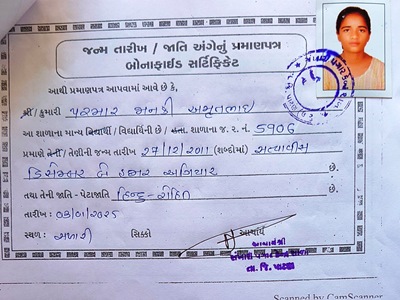 જન્મ તારીખ / જાતિ અંગેનું પ્રમાણપત્ર
બોનાફાઈડ સર્ટિફિકેટ
આથી પ્રમાણપત્ર આપવામાં આવે છે કે,
શ્રી / કુમારી પરમાર જાનકી અમૃતભાઇ
આ શાળાના માન્ય વિદ્યાર્થી / વિદ્યાર્થિની છે / શાળાના જ. ર. નં. 5906
પ્રમાણે તેની / તેણીની જન્મ તારીખ 27/12/2011 (શબ્દોમાં) સત્યાવીસ
ડિસેમ્બર બે હજાર અગિયાર છે.
તથા તેની જાતિ - પેટાજાતિ હિન્દુ - રોહિત છે.
તારીખ : 03/01/2025
સ્થળ : સિક્કો આચાર્ય
આચાર્યશ્રી
તા. જિ. પાટણ
Scanned by CamScanner